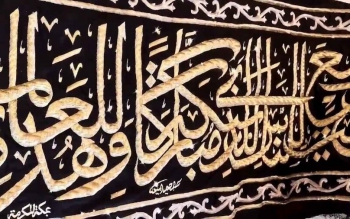 وضع للناس للذي ببكة مباركا وهدى للعالمين
بمكة المكرمة